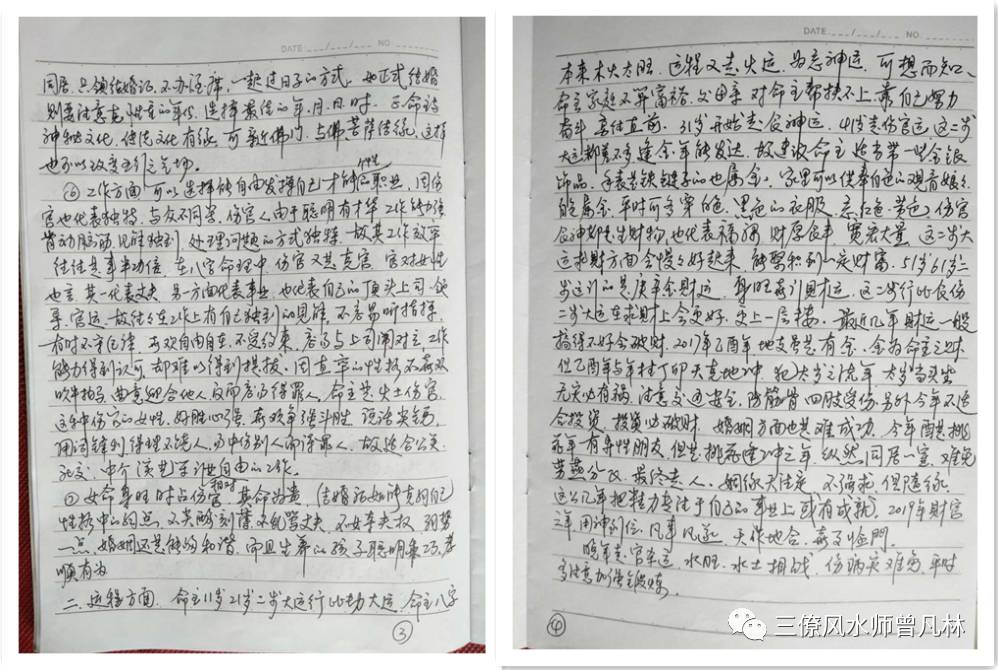 DATE: ___/___/___ NO.
同居、只领结婚证、不办酒席,一起过日子的方式,如正式结婚
则要注意竞
的年份,选择最佳的年、月、日、时。
神秘文化、传统文化有缘,可亲近佛门,与佛菩萨结缘,这样
也可以改变
⑥工作方面,可以选择能自由发挥自己才能个性职业,因伤
官也代表独特,与众不同等,伤官人由于聪明有才华,工作能力强
肯动脑筋,见解独到,处理问题的方式独特,故其工作效率
往往是事半功倍,在八字命理中,伤官又其克官,官对女性
也言其一代表丈夫,另一方面代表事业,也代表自己的顶头上司、领
导、官运,故往往在工作上有自己独到的见解,不愿易听指挥,
有时不守纪律,喜欢自由自在,不受约束,
与上司闹对立,工作
能力得到认可,却难以得到提拔。因直率的性格,不喜欢
吹牛拍马,曲意迎合他人,反而
得罪人,命主是火土伤官,
这种伤官的女性,好胜心强,喜欢争强斗胜,说话尖锐,
用词锋利,得理不饶人,
中伤别人而得罪人,故适合公关
社交、中介、演艺等相对自由的工作。
⑦女命身旺时
伤官,其命为贵,结婚
如能克制自己
性格中的弱点,不尖酸刻薄,不乱管丈夫,不女夺夫权,弱势
一点,婚姻还是能够和谐,而且生养的孩子聪明乖巧,孝
顺有为
二、运程方面,命主11岁21岁二步大运行比劫大运,命主八字
③
DATE: ___/___/___ NO.
本来木火太旺,运程又走火运,为忌神运,可想而知、
命主家庭不算富裕,父母亲对命主帮扶不上,靠自己努力
奋斗,勇往直前。31岁开始走食神运,41岁走伤官运,这二步
大运都差不多,逢金年能发达,故建议命主
带一些金银
饰品,手表等铁链子的也属金,家里可以供奉白色的观音娘娘
的属金,平时可多穿白色、黑色的衣服,忌红色、黄色,伤官
食神
生财物,也代表福禄,财厚食丰,宽宏大量,这二步大
运求财方面会慢慢好起来,能聚积到一定财富。51岁61岁二
步运行的是庚辛金财运,身旺喜行财运,这二步行比食伤
二步大运在求财上会更好,更上一层楼。最近几年财运一般
搞得不好会破财,2017年乙酉年地支虽是有金,金为命主之财,
但乙酉年与年柱丁卯天克地冲,犯太岁之流年,太岁当头坐
无灾必有祸,注意交通安全,防筋骨四肢受伤,另外今年不适
合投资,投资必破财,婚姻方面也其难成功,今年酉是桃
花年,有异性朋友,但其桃花逢冲之年,纵然同居一室,难免
劳燕分飞,最终走人。姻缘天注定,不强求,但随缘,
这么几年把精力专注于自己的事业上或有成就,2019年财官
之年,用神到位,凡事
,天作地合,喜事临门。
晚年走官杀运,水旺,水土相战,伤病灾难免,平时
多注意加强
锻炼。
④
三僚风水师曾凡林